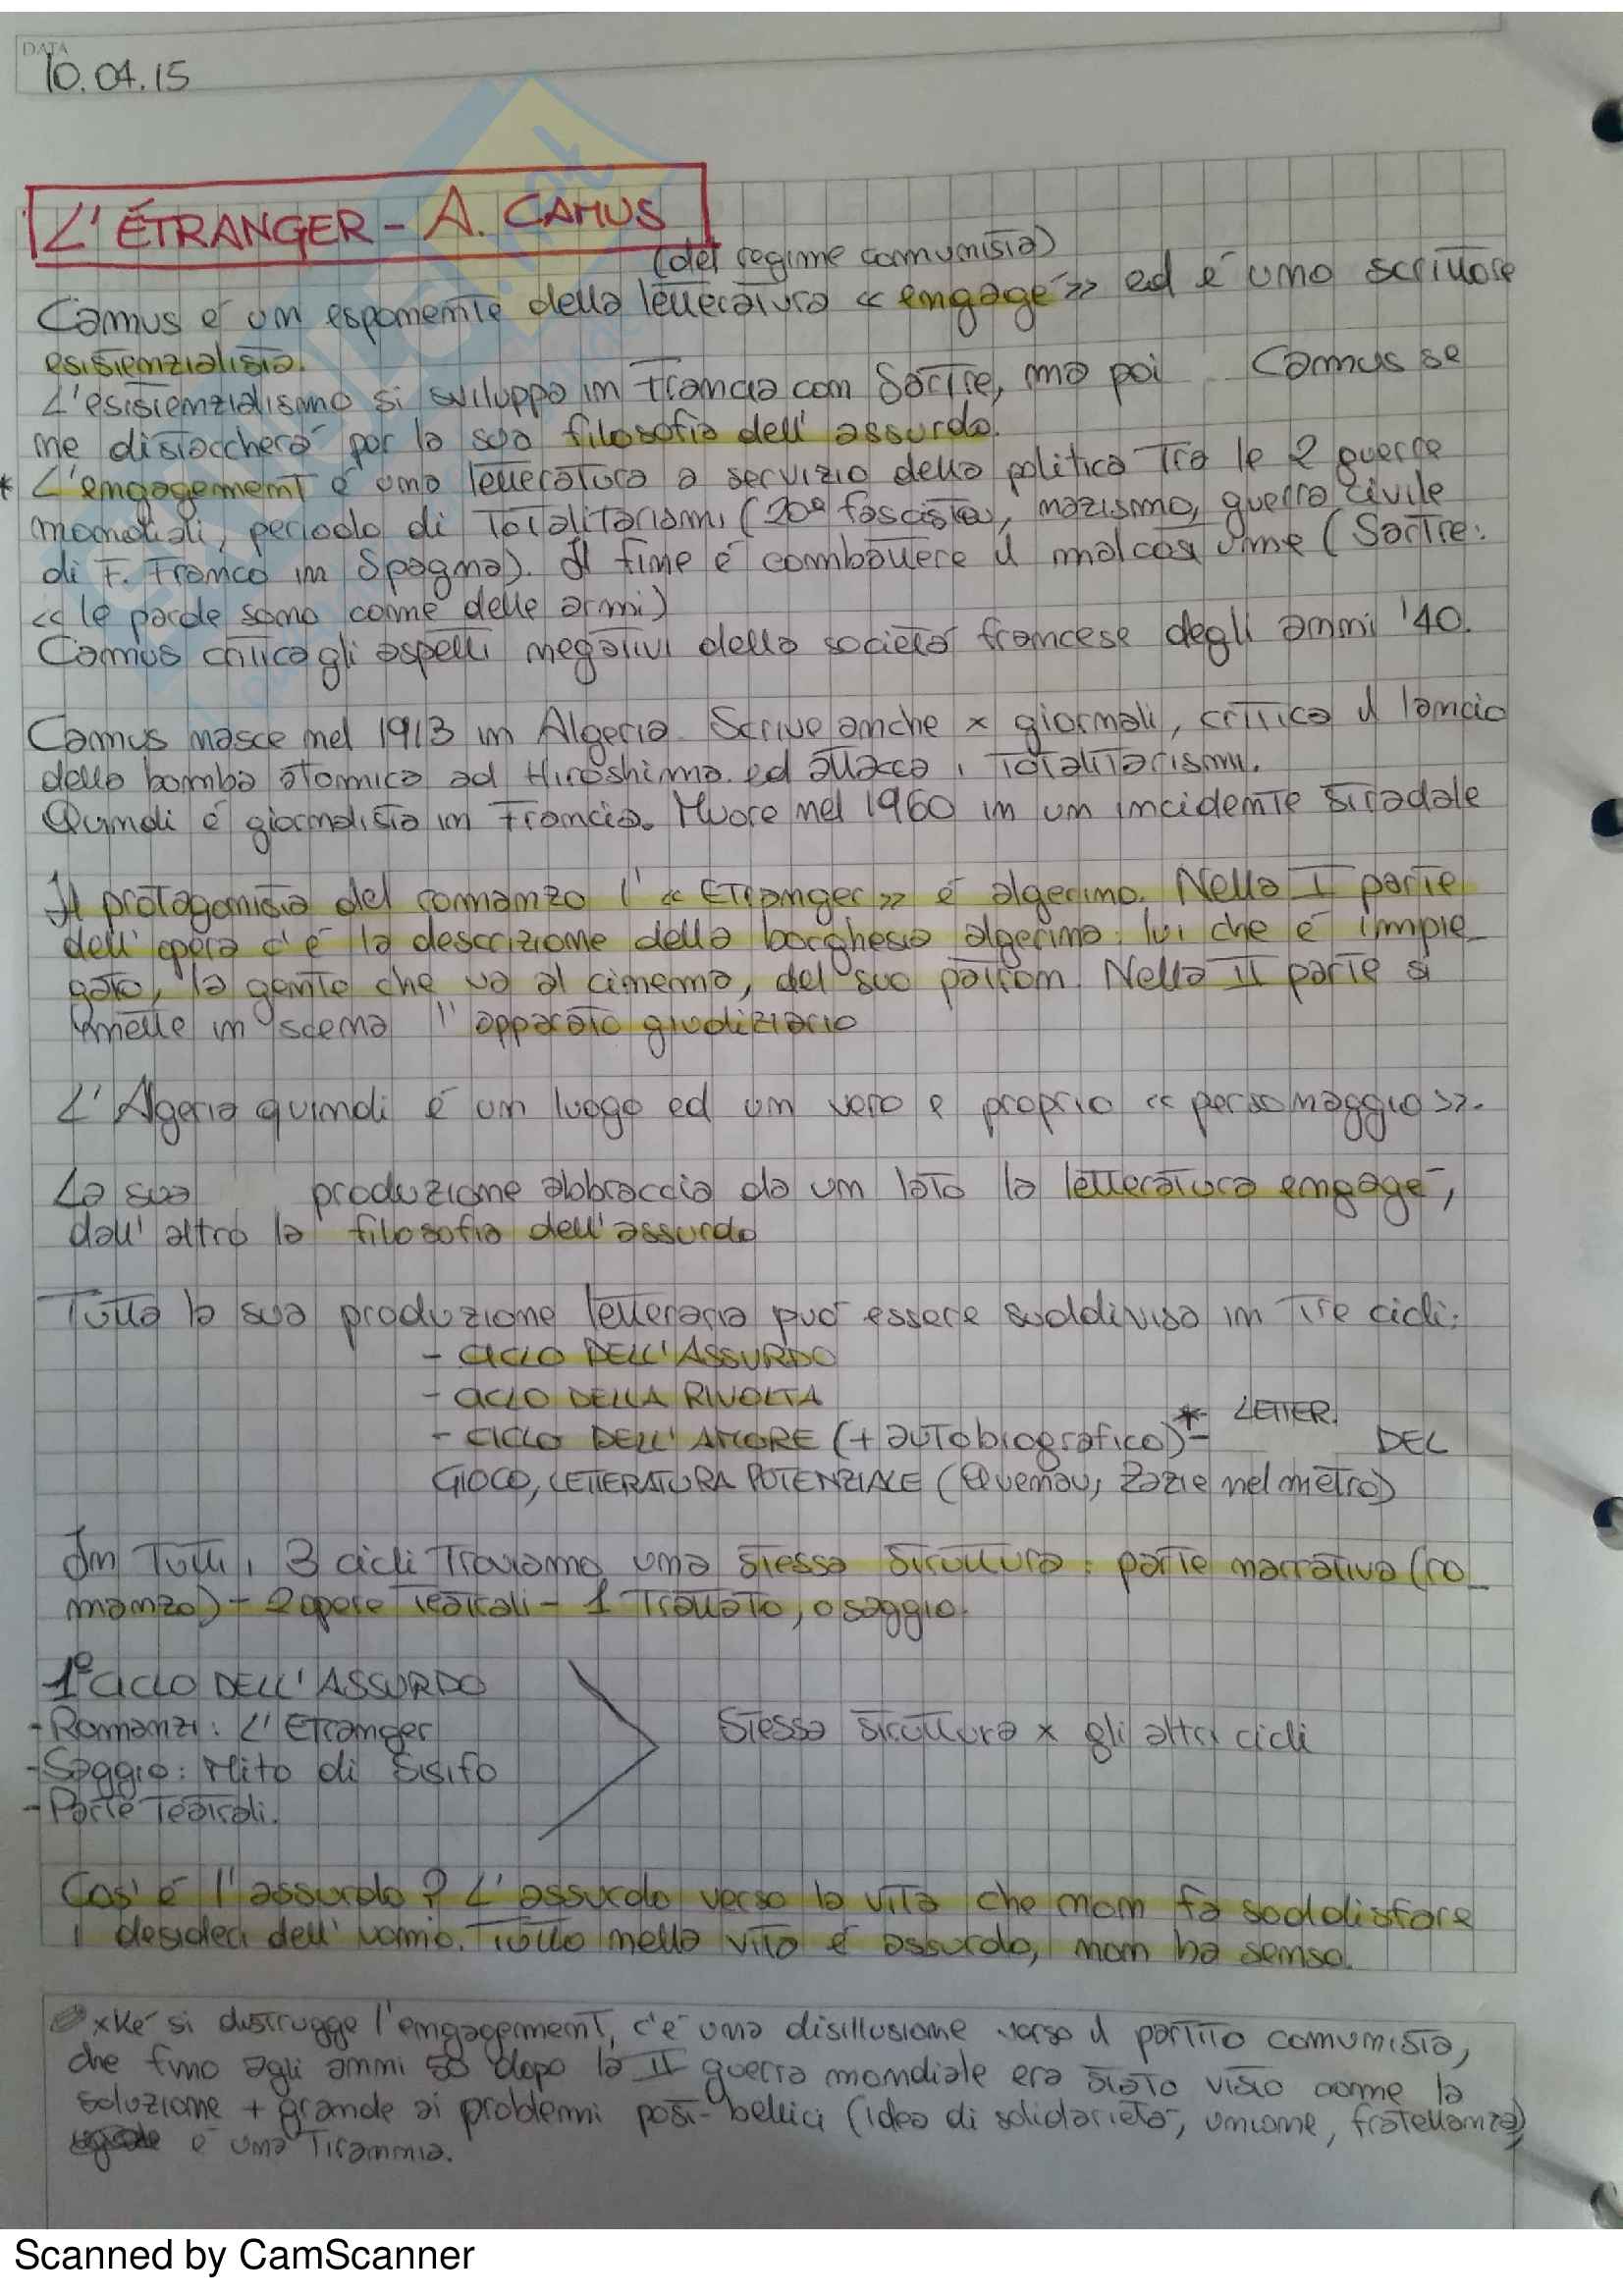 DATA
10.04.15
L'ÉTRANGER - A. CAMUS
(del regime comunista)
Camus é un esponente della letteratura « engagé » ed é uno scrittore
esistenzialista.
L'esistenzialismo si sviluppa in Francia con Sartre, ma poi Camus se
ne distaccherá per la sua filosofia dell'assurdo.
* L'engagement é una letteratura a servizio della politica tra le 2 guerre
mondiali, periodo di Totalitarismi (20º fascista, nazismo, guerra civile
di F. Franco in Spagna). Il fine é combattere il malcostume (Sartre:
« le parole sono come delle armi)
Camus critica gli aspetti negativi della societá francese degli anni '40.
Camus nasce nel 1913 in Algeria. Scrive anche x giornali, critica il lancio
della bomba atomica ad Hiroshima. ed attacca i Totalitarismi.
Quindi é giornalista in Francia. Muore nel 1960 in un incidente stradale
Il protagonista del romanzo l' « Etranger » é algerino. Nella I parte
dell'opera c'é la descrizione della borghesia algerina: lui che é impie-
gato, la gente che va al cinema, del suo patron. Nella II parte si
mette in scena l'apparato giudiziario
L'Algeria quindi é un luogo ed un vero e proprio « personaggio ».
La sua produzione abbraccia da un lato la letteratura engagé,
dall'altro la filosofia dell'assurdo
Tutta la sua produzione letteraria puó essere suddivisa in Tre cicli:
- CICLO DELL'ASSURDO
- CICLO DELLA RIVOLTA
- CICLO DELL'AMORE (+ autobiografico) *- LETTER. DEL
GIOCO, LETTERATURA POTENZIALE (Quenau, Zazie nel metro)
In Tutti i 3 cicli Troviamo una stessa struttura: parte narrativa (ro-
manzo) - 2 opere Teatrali - 1 Trattato, o saggio.
1º CICLO DELL'ASSURDO
- Romanzi: L'Etranger
- Saggio: Mito di Sisifo
- Parte Teatrali.
Stessa struttura x gli altri cicli
Cos'é l'assurdo? L'assurdo verso la vita che non fa soddisfare
i desideri dell'uomo. Tutto nella vita é assurdo, non ha senso.
xké si distrugge l'engagement, c'é una disillusione verso il partito comunista,
che fino agli anni 50 dopo la II guerra mondiale era stato visto come la
soluzione + grande ai problemi post-bellici (idea di solidarietá, unione, fratellanza)
é una Tirannia.
Scanned by CamScanner